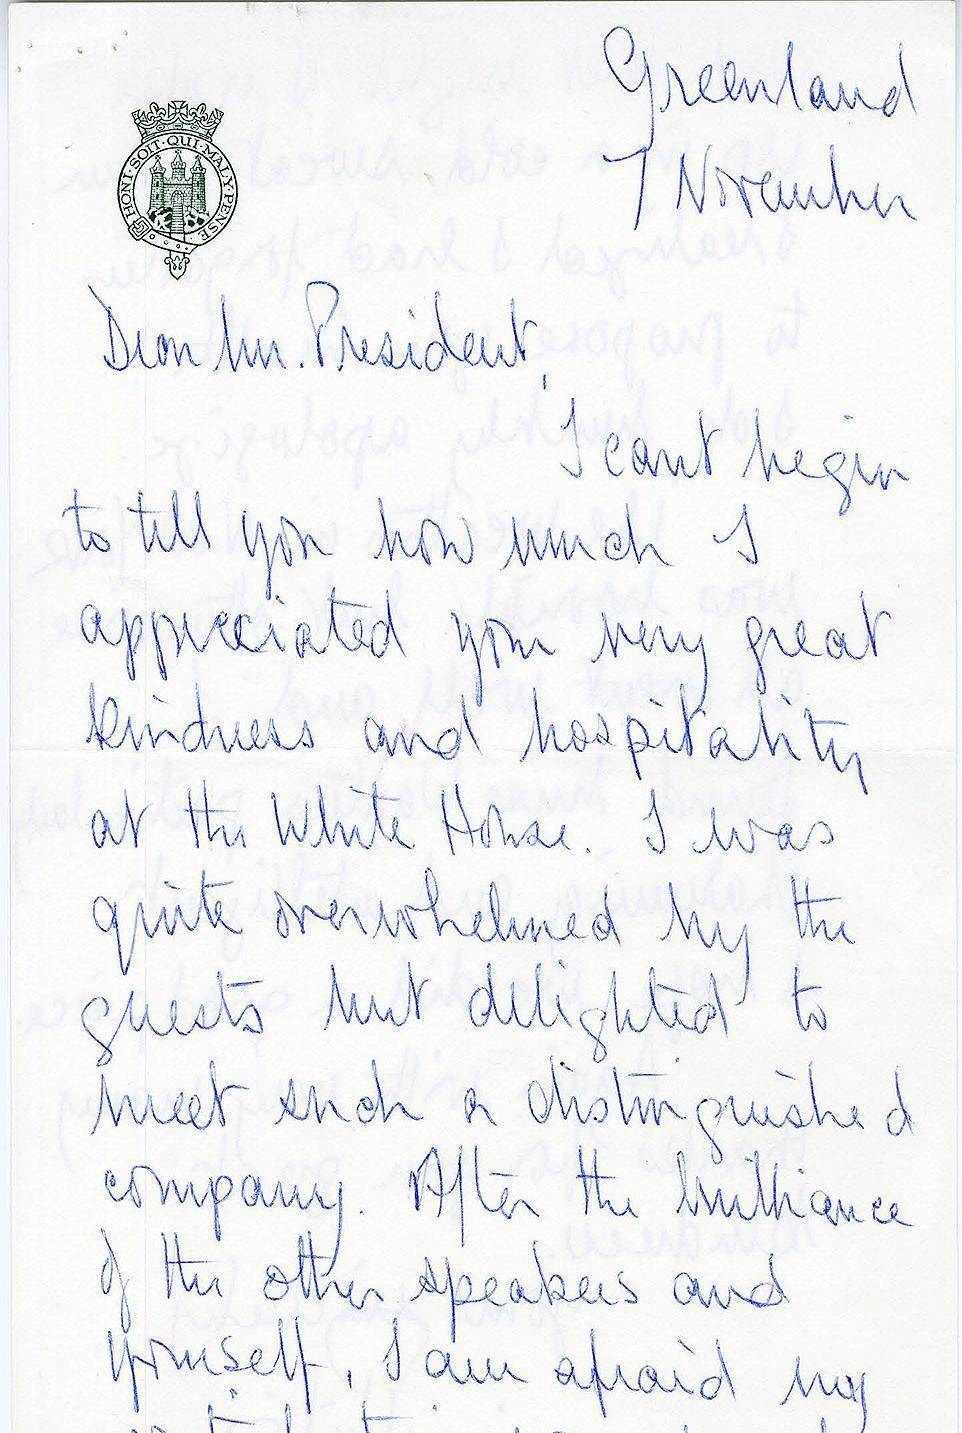 Greenland
7 November
HONI·SOIT·QUI·MALY·PENSE
Dear Mr. President,
I cant begin
to tell you how much I
appreciated your very great
kindness and hospitality
at the White House. I was
quite overwhelmed by the
guests but delighted to
meet such a distinguished
company. After the brilliance
of the other speakers and
yourself, I am afraid my